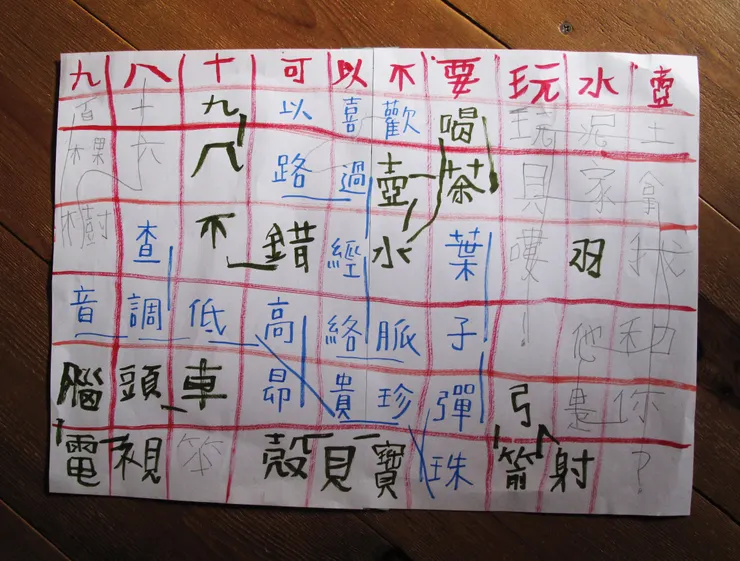 九八十可以不要玩水壺
百十九以喜歡喝玩泥土
棵六八路過壺茶具家拿
樹查不錯經水葉嘍羽我
音調低高絡脈子！他和
腦頭車昂貴珍彈弓是你
電視笨殼貝寶珠箭射？